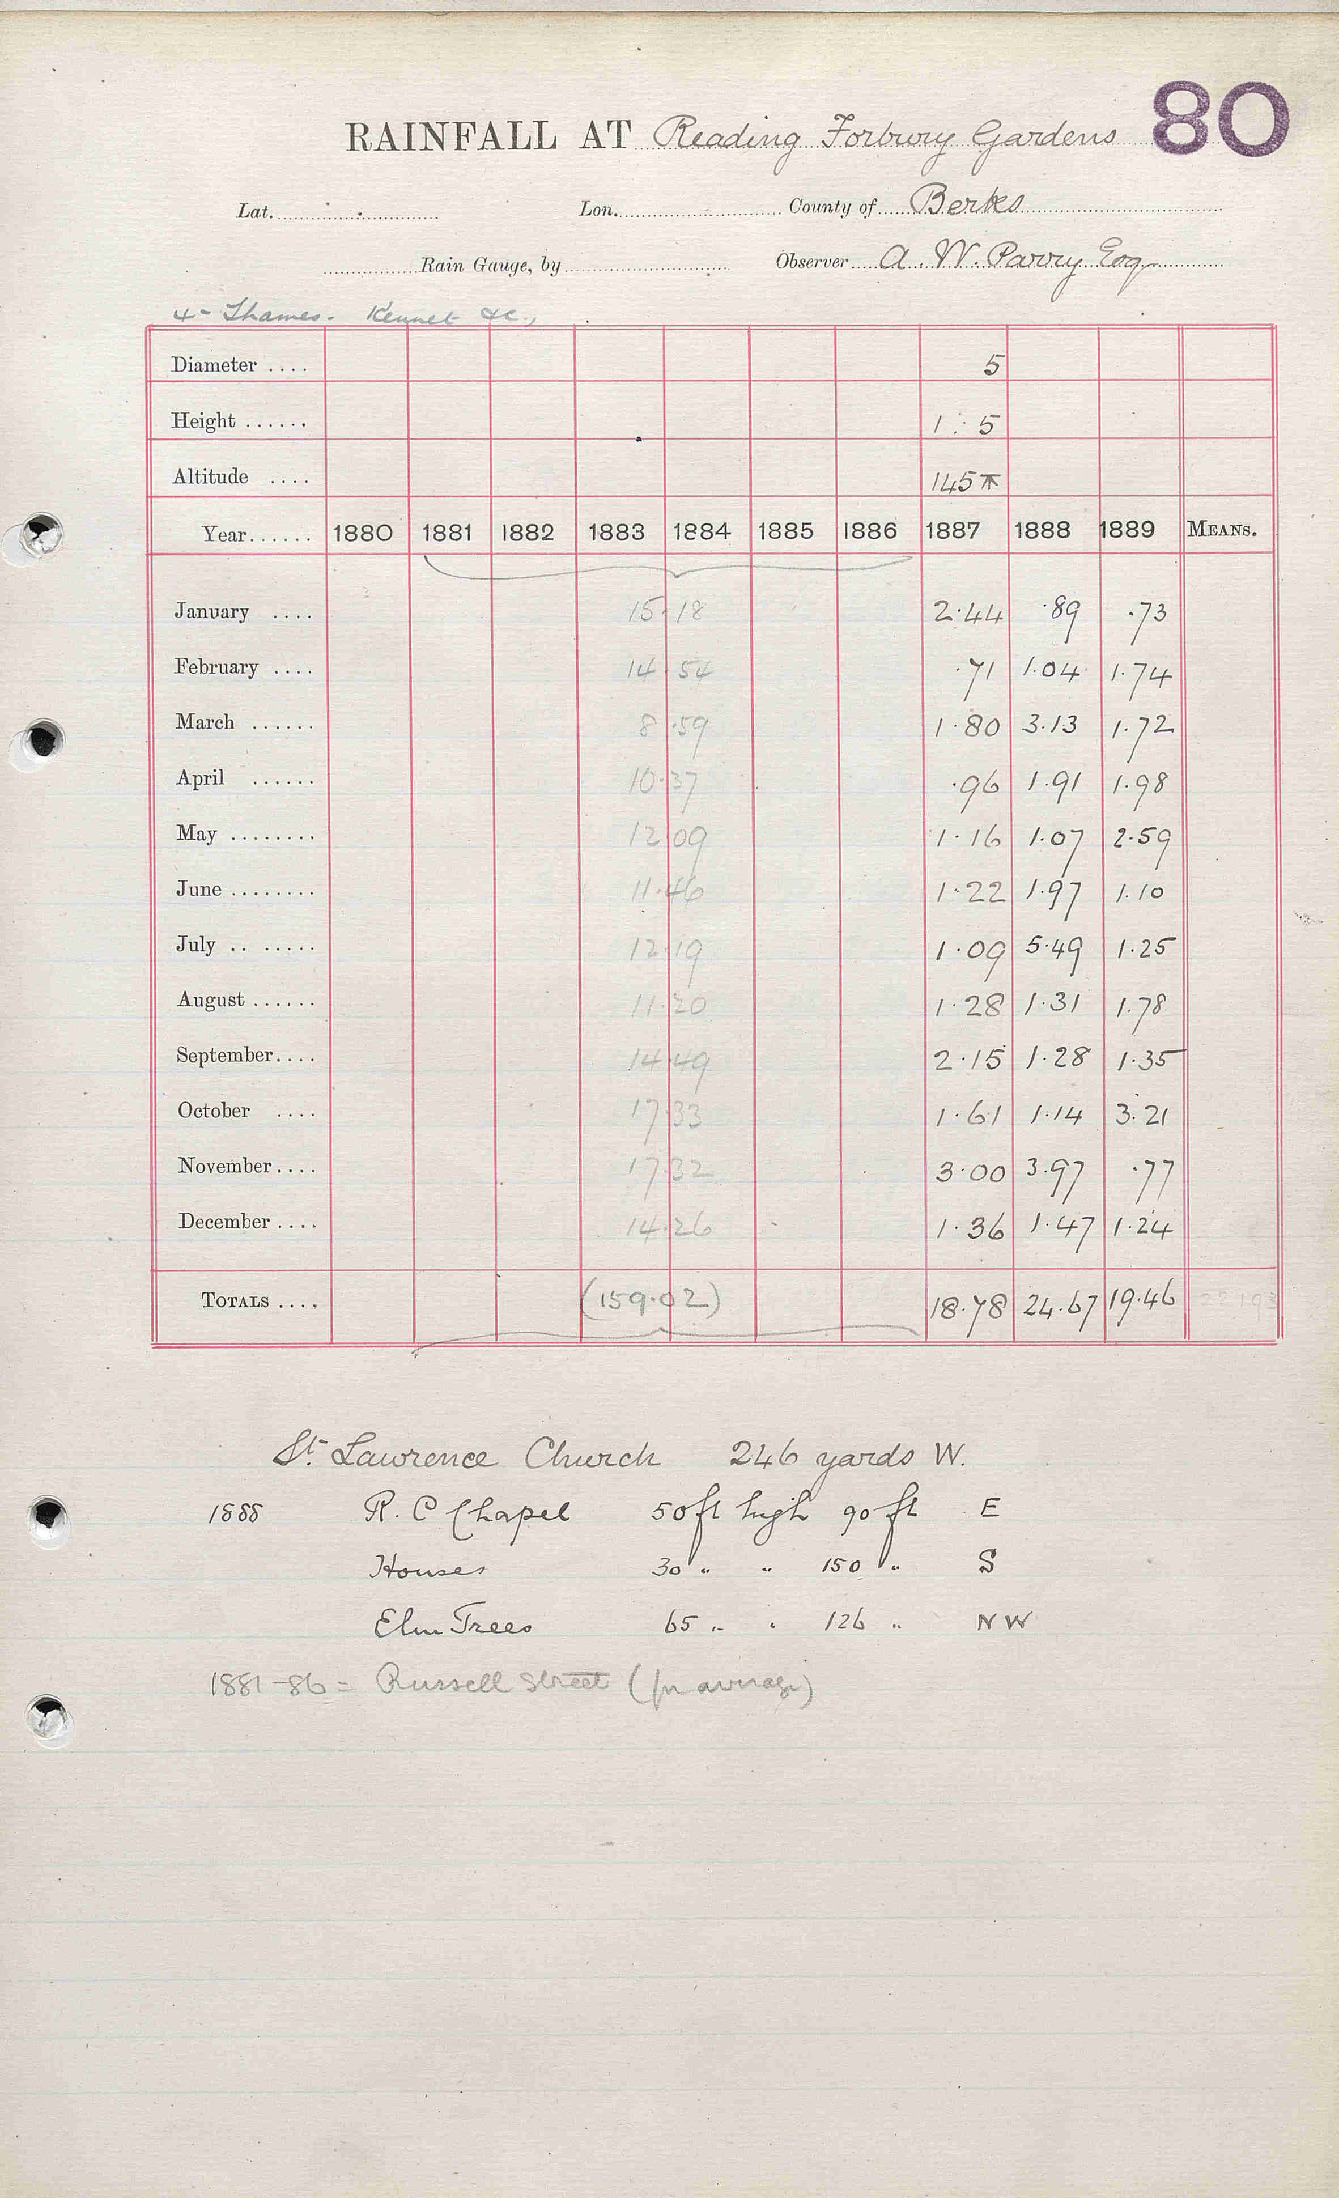 80
RAINFALL AT Reading Forbury Gardens
Lat. Lon. County of Berks
Rain Gauge, by Observer A. W. Parry Esq
4- Thames. Kennet &c.,
Diameter .... 5
Height ...... 1 : 5
Altitude .... 145
Year...... 1880 1881 1882 1883 1884 1885 1886 1887 1888 1889 MEANS.
January .... 15.18 2.44 .89 .73
February .... 14.54 .71 1.04 1.74
March ...... 8.59 1.80 3.13 1.72
April ...... 10.37 .96 1.91 1.98
May ........ 12.09 1.16 1.07 2.59
June ........ 11.46 1.22 1.97 1.10
July .. ..... 12.19 1.09 5.49 1.25
August ...... 11.20 1.28 1.31 1.78
September.... 14.49 2.15 1.28 1.35
October .... 17.33 1.61 1.14 3.21
November.... 17.32 3.00 3.97 .77
December .... 14.26 1.36 1.47 1.24
TOTALS .... (159.02) 18.78 24.67 19.46
St. Lawrence Church 246 yards W.
1888 R. C Chapel 50 ft high 90 ft E
Houses 30 " " 150 " S
Elm Trees 65 " " 126 " NW
1881-86 = Russell Street (for average)